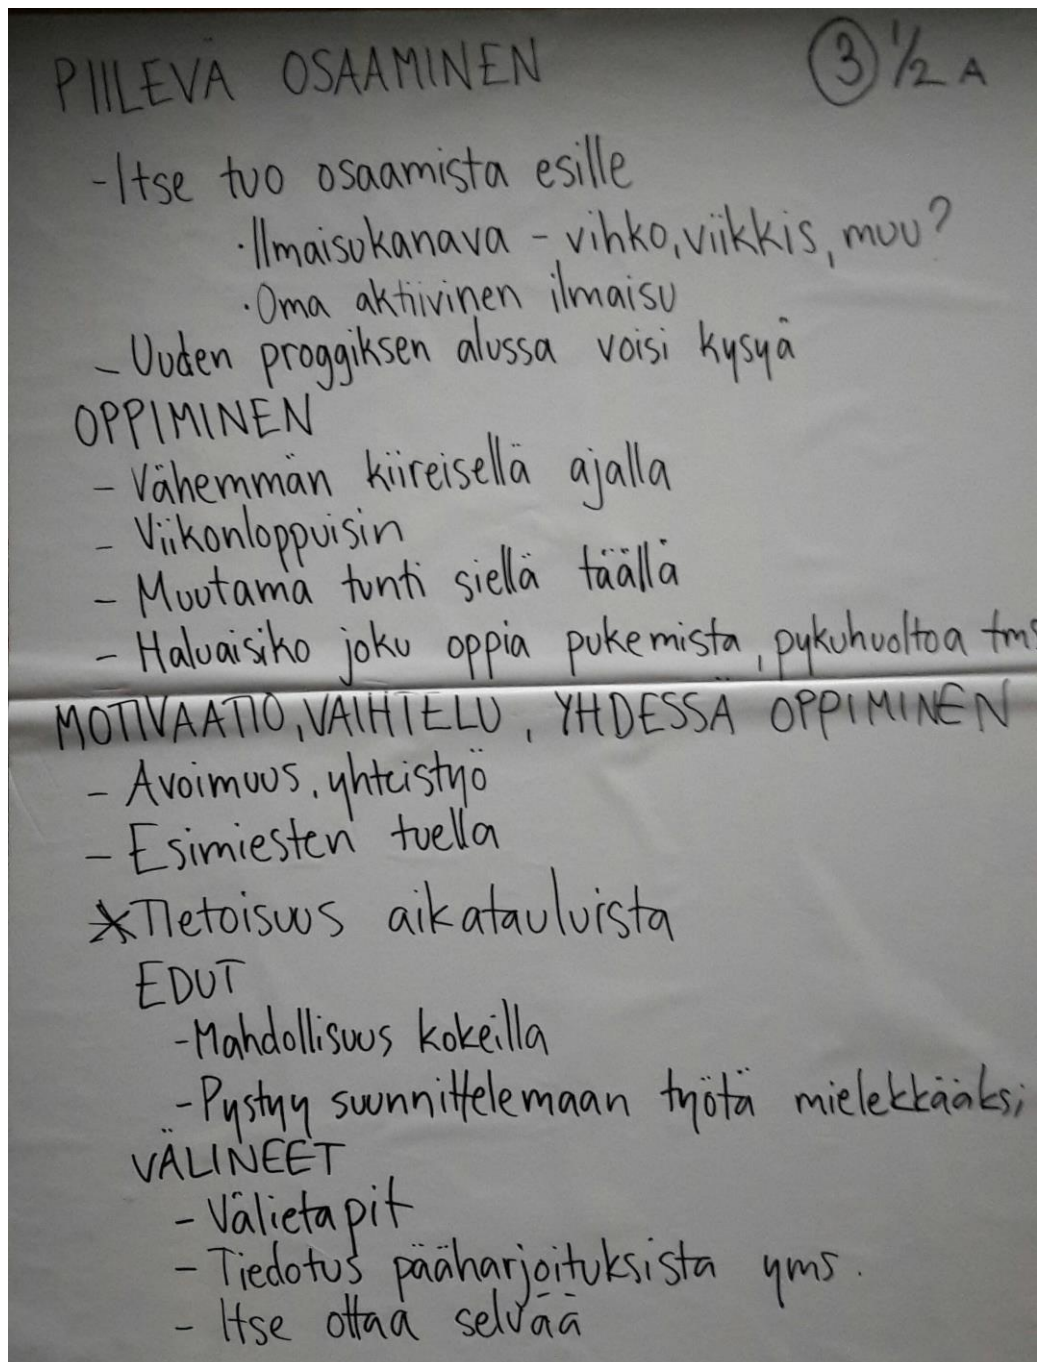 PIILEVÄ OSAAMINEN ③ 1/2 A
- Itse tuo osaamista esille
· Ilmaisukanava - vihko, viikkis, muu?
· Oma aktiivinen ilmaisu
- Uuden proggiksen alussa voisi kysyä
OPPIMINEN
- Vähemmän kiireisellä ajalla
- Viikonloppuisin
- Muutama tunti siellä täällä
- Haluaisiko joku oppia pukemista, pykuhuoltoa tms
MOTIVAATIO, VAIHTELU, YHDESSÄ OPPIMINEN
- Avoimuus, yhteistyö
- Esimiesten tuella
* Tietoisuus aikatauluista
EDUT
- Mahdollisuus kokeilla
- Pystyy suunnittelemaan työtä mielekkääksi
VÄLINEET
- Välietapit
- Tiedotus pääharjoituksista yms.
- Itse ottaa selvää